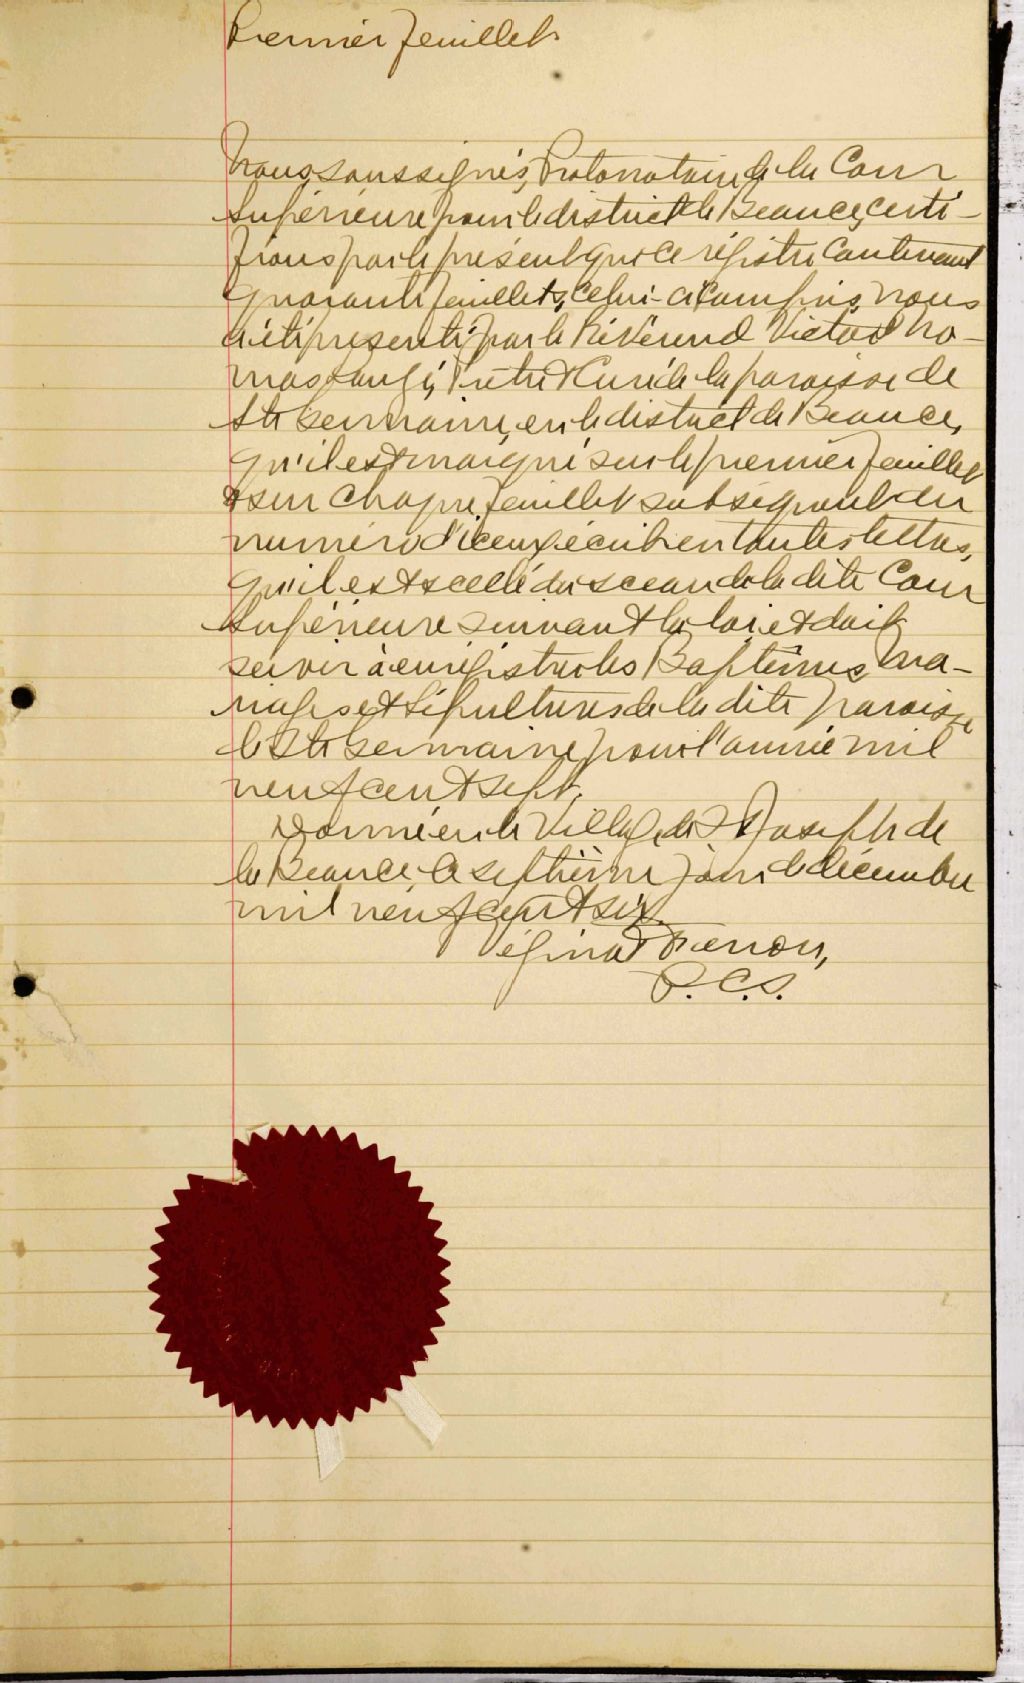 Premier feuillet
Nous, soussignés, Protonotaire de la Cour
Supérieure pour le district de Beauce, certi-
fions par le présent que ce régistre contenant
quarante feuillets, celui-ci compris, nous
a été présenté par le Révérend Victor
Prêtre & Curé de la paroisse de
Ste Germaine, en le district de Beauce,
qu'il est marqué sur le premier feuillet
& sur chaque feuillet subséquent du
numéro d'iceux écrit en toutes lettres,
qu'il est scellé du sceau de la dite Cour
Supérieure suivant la loi, et doit
servir à enrégistrer les Baptêmes, Ma-
riages et Sépultures de la dite paroisse
de Ste Germaine pour l'année mil
neuf cent sept.
Donné en le Village de St Joseph de
la Beauce, ce septième jour de décembre
mil neuf cent six.
P.C.S.